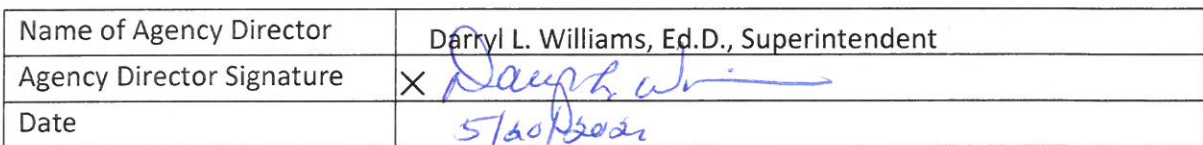 Name of Agency Director Darryl L. Williams, Ed.D., Superintendent
Agency Director Signature X
Date